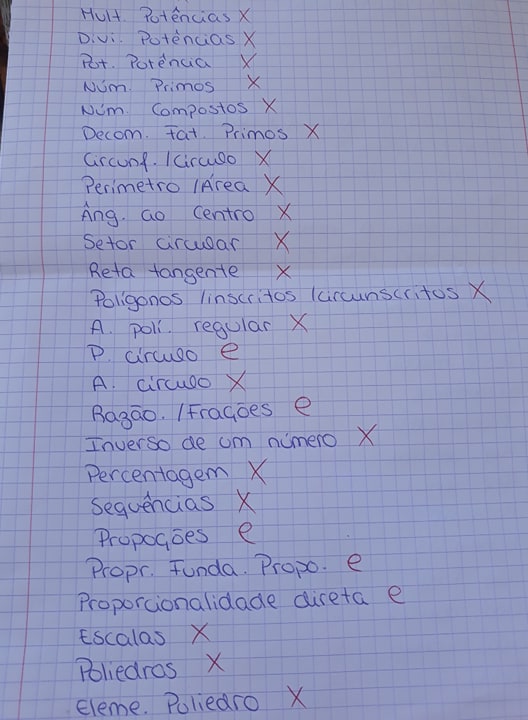 Mult. Potências X
Divi. Potências X
Pot. Potência X
Núm. Primos X
Núm. Compostos X
Decom. Fat. Primos X
Circunf. /Circulo X
Perímetro /Área X
Âng. ao Centro X
Setor circular X
Reta tangente X
Polígonos /inscritos /circunscritos X
A. polí. regular X
P. círculo e
A. círculo X
Razão. /Frações e
Inverso de um número X
Percentagem X
Sequências X
Propoções e
Propr. Funda. Propo. e
Proporcionalidade direta e
Escalas X
Poliedros X
Eleme. Poliedro X